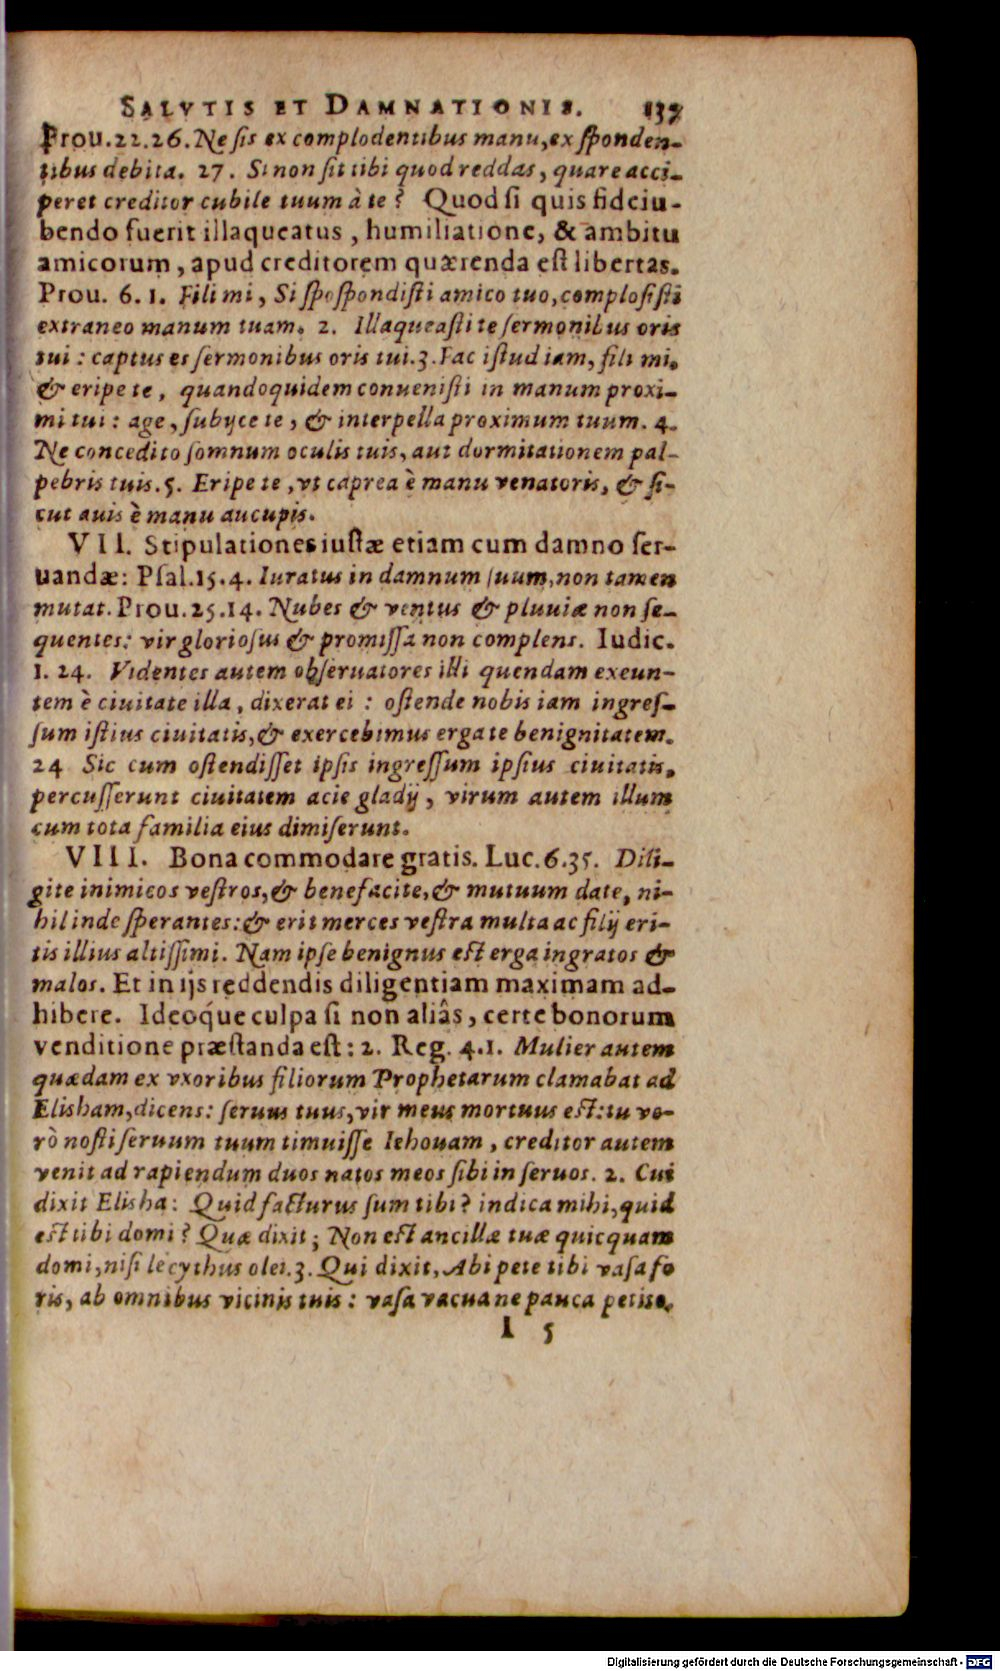 SALVTIS ET DAMNATIONIS. 137
Prou.22.26. Ne sis ex complodentibus manu, ex sponden-
tibus debita. 27. Si non sit tibi quod reddas, quare acci-
peret creditor cubile tuum à te? Quod si quis fideiu-
bendo fuerit illaqueatus, humiliatione, & ambitu
amicorum, apud creditorem quærenda est libertas.
Prou. 6. 1. Fili mi, Si spospondisti amico tuo, complosisti
extraneo manum tuam. 2. Illaqueasti te sermonibus oris
tui: captus es sermonibus oris tui. 3. Fac istud iam, fili mi,
& eripe te, quandoquidem conuenisti in manum proxi-
mi tui: age, subijce te, & interpella proximum tuum. 4.
Ne concedito somnum oculis tuis, aut dormitationem pal-
pebris tuis. 5. Eripe te, vt caprea è manu venatoris, & si-
cut auis è manu aucupis.
VII. Stipulationes iustæ etiam cum damno ser-
uandæ: Psal. 15. 4. Iuratus in damnum suum, non tamen
mutat. Prou. 25. 14. Nubes & ventus & pluuiæ non se-
quentes: vir gloriosus & promissa non complens. Iudic.
1. 24. Videntes autem obseruatores illi quendam exeun-
tem è ciuitate illa, dixerat ei: ostende nobis iam ingres-
sum istius ciuitatis, & exercebimus erga te benignitatem.
24 Sic cum ostendisset ipsis ingressum ipsius ciuitatis,
percusserunt ciuitatem acie gladij, virum autem illum
cum tota familia eius dimiserunt.
VIII. Bona commodare gratis. Luc. 6. 35. Dili-
gite inimicos vestros, & benefacite, & mutuum date, ni-
hil inde sperantes: & erit merces vestra multa ac filij eri-
tis illius altissimi. Nam ipse benignus est erga ingratos &
malos. Et in ijs reddendis diligentiam maximam ad-
hibere. Ideóque culpa si non aliâs, certe bonorum
venditione præstanda est: 2. Reg. 4. 1. Mulier autem
quædam ex vxoribus filiorum Prophetarum clamabat ad
Elisham, dicens: seruus tuus, vir meus mortuus est: tu ve-
rò nosti seruum tuum timuisse Iehouam, creditor autem
venit ad rapiendum duos natos meos sibi in seruos. 2. Cui
dixit Elisha: Quid facturus sum tibi? indica mihi, quid
est tibi domi? Quæ dixit; Non est ancillæ tuæ quicquam
domi, nisi lecythus olei. 3. Qui dixit, Abi pete tibi vasa fo
ris, ab omnibus vicinis tuis: vasa vacua ne pauca petito.
I 5
Digitalisierung gefördert durch die Deutsche Forschungsgemeinschaft - DFG